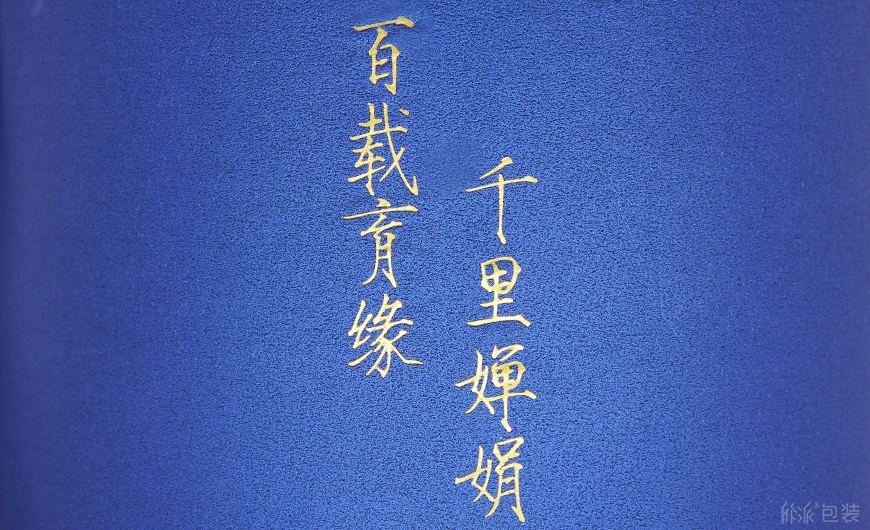 百载育缘
千里婵娟
包装